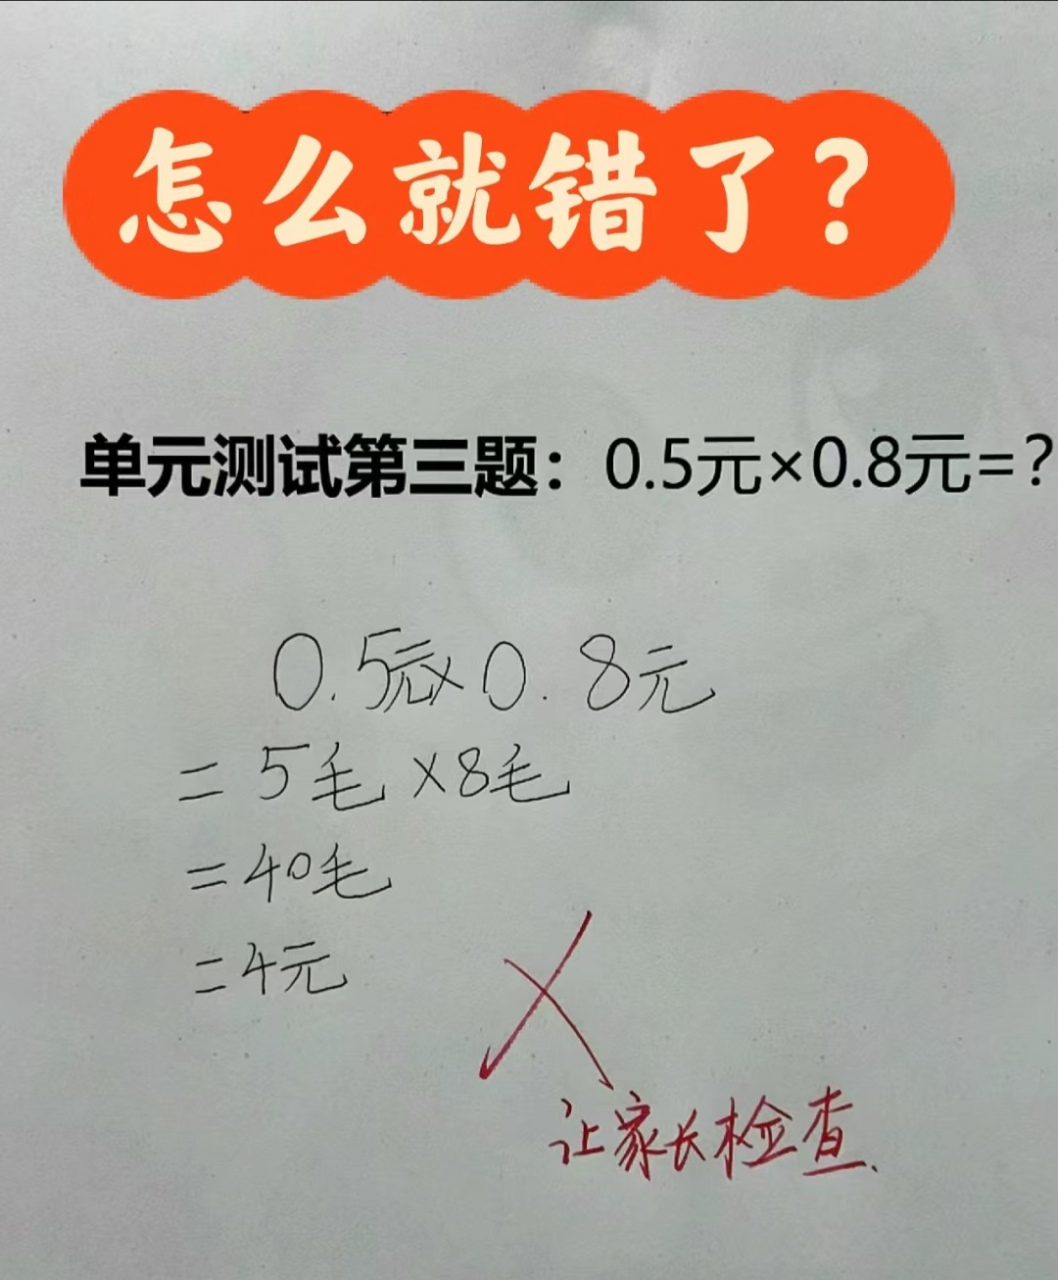 怎么就错了?
单元测试第三题：0.5元×0.8元=?
0.5元×0.8元
=5毛×8毛
=40毛
=4元
让家长检查.